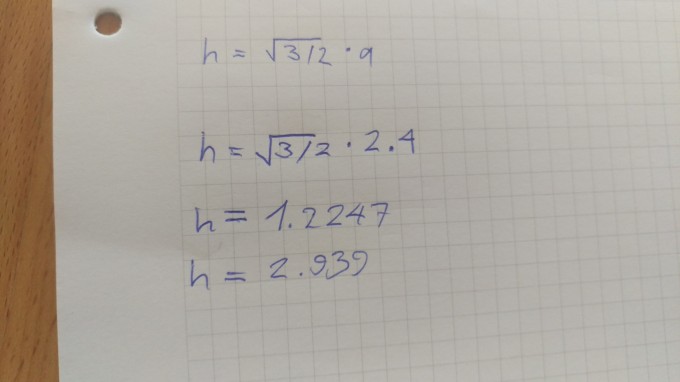 h = √3/2 · a
h = √3/2 · 2.4
h = 1.2247
h = 2.939